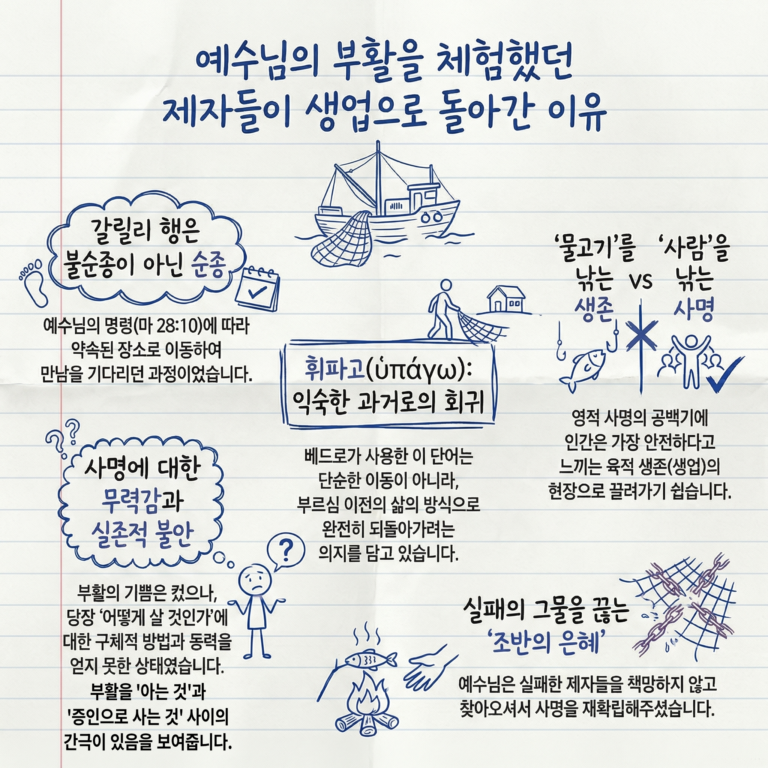 예수님의 부활을 체험했던
제자들이 생업으로 돌아간 이유
갈릴리 행은
불순종이 아닌 순종
예수님의 명령(마 28:10)에 따라
약속된 장소로 이동하여
만남을 기다리던 과정이었습니다.
'물고기'를
낚는
생존
vs
'사람'을
낚는
사명
영적 사명의 공백기에
인간은 가장 안전하다고
느끼는 육적 생존(생업)의
현장으로 끌려가기 쉽습니다.
휘파고(ὑπάγω):
익숙한 과거로의 회귀
베드로가 사용한 이 단어는
단순한 이동이 아니라,
부르심 이전의 삶의 방식으로
완전히 되돌아가려는
의지를 담고 있습니다.
? ?
사명에 대한
무력감과
실존적 불안
?
부활의 기쁨은 컸으나,
당장 '어떻게 살 것인가'에
대한 구체적 방법과 동력을
얻지 못한 상태였습니다.
부활을 '아는 것'과
'증인으로 사는 것' 사이의
간극이 있음을 보여줍니다.
실패의 그물을 끊는
'조반의 은혜'
예수님은 실패한 제자들을 책망하지 않고
찾아오셔서 사명을 재확립해주셨습니다.